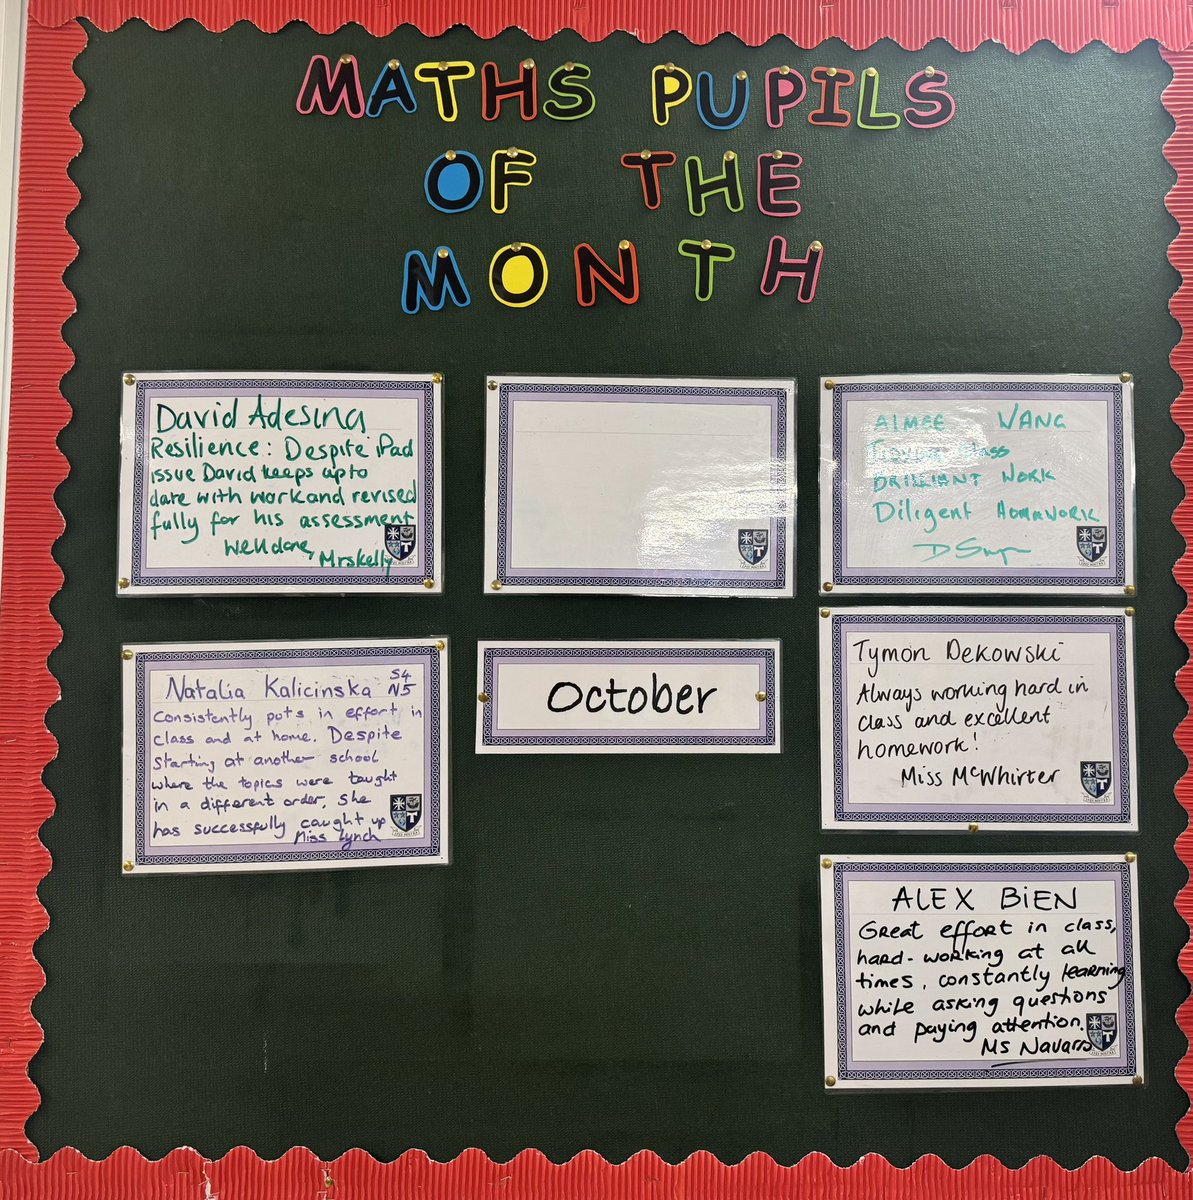 MATHS PUPILS
OF THE
MONTH
David Adesina
Resilience: Despite iPad
issue David keeps up to
date with work and revised
fully for his assessment
Well done,
Mrs Kelly
AIMEE WANG
class
BRILLIANT WORK
Diligent HOMEWORK
Natalia Kalicinska S4
N5
Consistently puts in effort in
class and at home. Despite
starting at another school
where the topics were taught
in a different order, she
has successfully caught up
Miss Lynch
October
Tymon Dekowski
Always working hard in
class and excellent
homework!
Miss McWhirter
ALEX BiEN
Great effort in class,
hard-working at all
times, constantly learning
while asking questions
and paying attention.
Ms Navarro